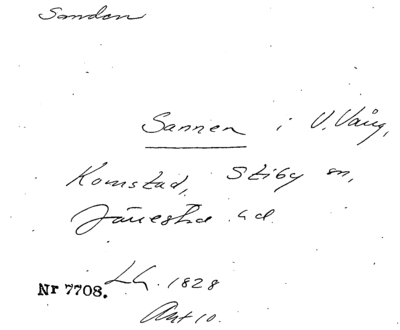 Sandon
Sannen i V. Vång,
Komstad, Stiby sn,
Järrestad hd.
Nr 7708. LG. 1828
Akt 10.